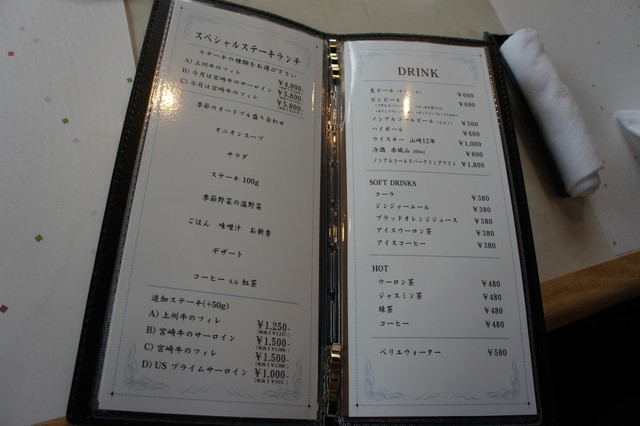 スペシャルステーキランチ
ステーキの種類をお選び下さい
A) 上州牛のフィレ ¥4,800-
B) 今月は宮崎牛のサーロイン ¥5,800-
C) 今月は宮崎牛のフィレ ¥5,800-
季節のオードブル盛り合わせ
オニオンスープ
サラダ
ステーキ 100g
季節野菜の温野菜
ごはん 味噌汁 お新香
デザート
コーヒー 又は 紅茶
追加ステーキ(+50g)
A) 上州牛のフィレ ¥1,250-
B) 宮崎牛のサーロイン ¥1,500-
C) 宮崎牛のフィレ ¥1,500-
D) US プライムサーロイン ¥1,000-
DRINK
生ビール ¥600
ビンビール ¥600
ノンアルコールビール ¥500
ハイボール ¥600
ウイスキー 山崎12年 ¥1,000
冷酒 赤城山 ¥800
ノンアルコールスパークリングワイン ¥1,800
SOFT DRINKS
コーラ ¥380
ジンジャーエール ¥380
ブラッドオレンジジュース ¥380
アイスウーロン茶 ¥380
アイスコーヒー ¥380
HOT
ウーロン茶 ¥480
ジャスミン茶 ¥480
緑茶 ¥480
コーヒー ¥480
ペリエウォーター ¥580